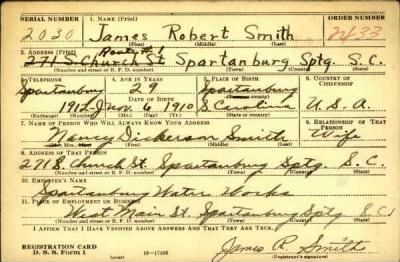 SERIAL NUMBER 1. NAME (Print) ORDER NUMBER
2030 James Robert Smith
(First) (Middle) (Last)
2. ADDRESS (Print) Route #1
271 S. Church St. Spartanburg Sptg. S.C.
(Number and street or R. F. D. number) (Town) (County) (State)
3. TELEPHONE 4. AGE IN YEARS 5. PLACE OF BIRTH 6. COUNTRY OF CITIZENSHIP
Spartanburg 29 Spartanburg
DATE OF BIRTH (Town or county)
1912 J Nov. 6 1910 S. Carolina U.S.A.
(Exchange) (Number) (Mo.) (Day) (Yr.) (State or country)
7. NAME OF PERSON WHO WILL ALWAYS KNOW YOUR ADDRESS 8. RELATIONSHIP OF THAT PERSON
Nancy Dickerson Smith Wife
(First) (Middle) (Last)
9. ADDRESS OF THAT PERSON
271 S. Church St. Spartanburg Sptg S.C.
(Number and street or R. F. D. number) (Town) (County) (State)
10. EMPLOYER'S NAME
Spartanburg Water Works
11. PLACE OF EMPLOYMENT OR BUSINESS
West Main St. Spartanburg Sptg S.C.
(Number and street or R. F. D. number) (Town) (County) (State)
I AFFIRM THAT I HAVE VERIFIED ABOVE ANSWERS AND THAT THEY ARE TRUE.
REGISTRATION CARD James R. Smith
D. S. S. Form 1 (over) (Registrant's signature)